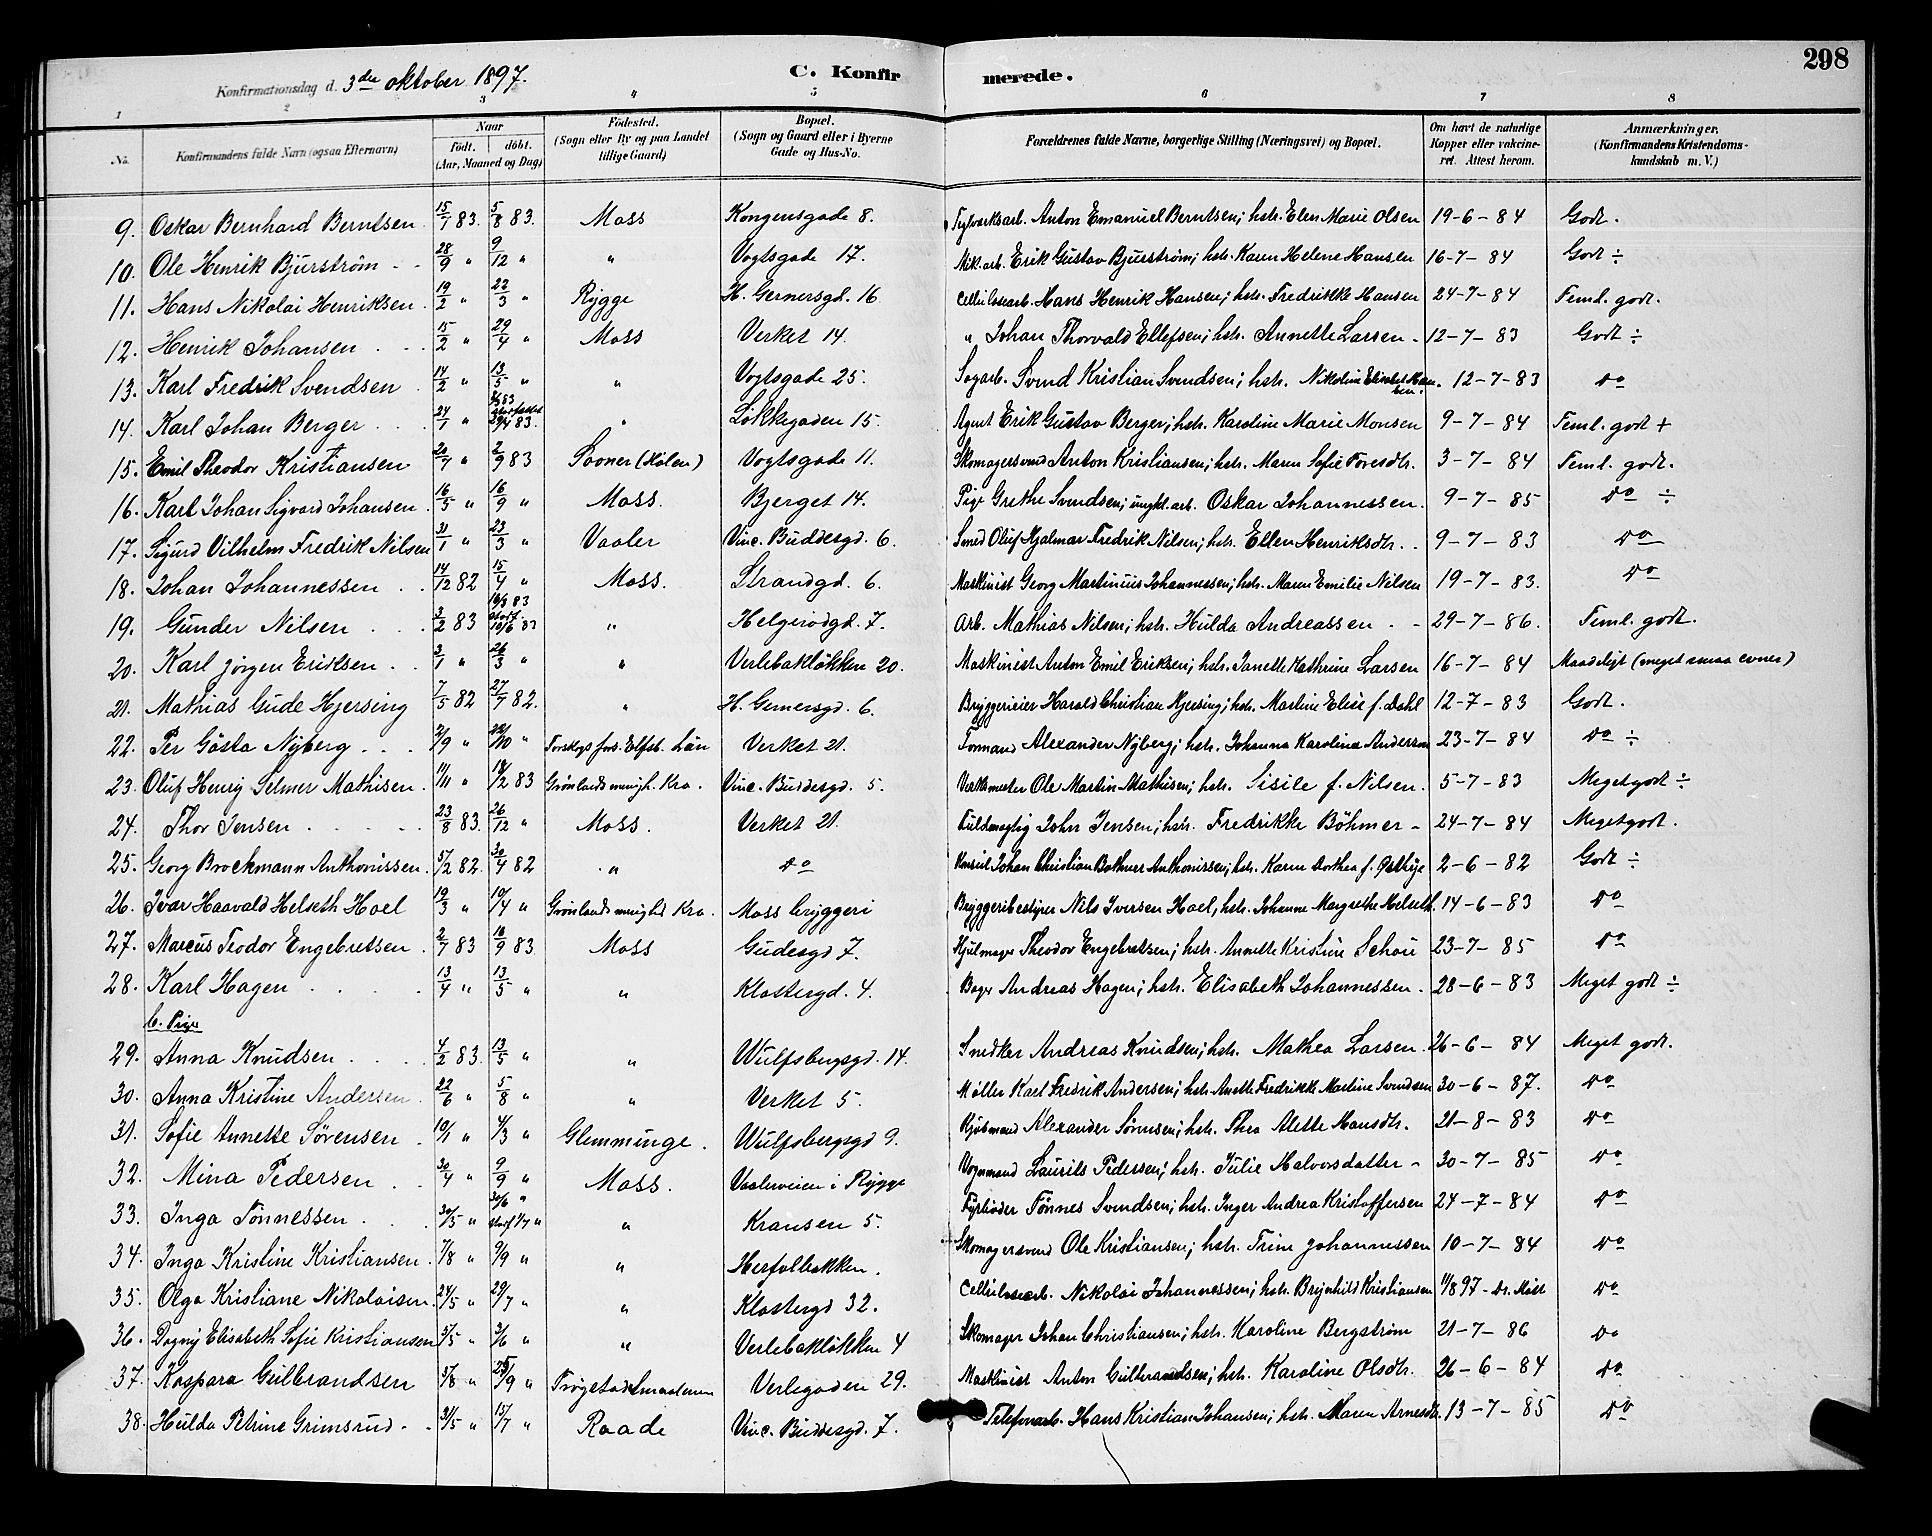 298
Konfirmationsdag d. 3die oktober 1897.
C. Konfirmerede.
1 2 3 4 5 6 7 8
No. Konfirmandens fulde Navn (ogsaa Efternavn) Naar Födt. döbt. (Aar, Maaned og Dag) Födested. (Sogn eller By og paa Landet tillige Gaard) Bopæl. (Sogn og Gaard eller i Byerne Gade og Hus-No. Forældrenes fulde Navne, borgerlige Stilling (Næringsvei) og Bopæl. Om havt de naturlige Kopper eller vakcineret. Attest herom. Anmærkninger. (Konfirmandens Kristendomskundskab m. V.)
9. Oskar Bernhard Berntsen 15/7 83. 5/8 83. Moss Kongensgade 8. Anton Emanuel Berntsen; hstr. Elen Marie Olsen 19-6-84 Godt.
10. Ole Henrik Bjurström 28/9 " 9/12 " " Vogtsgade 17. Erik Gustav Bjurström; hstr. Karen Helene Hansen 16-7-84 Godt ÷
11. Hans Nikolai Henriksen 19/2 " 22/3 " Rygge H. Gernersgd. 16 Cellulosearb. Hans Henrik Hansen; hstr. Fredrikke Hansen 24-7-84 Teml. godt.
12. Henrik Johansen 15/2 " 29/4 " Moss Verket 14. " Johan Thorvald Ellefsen; hstr. Annette Larsen 12-7-83 Godt ÷
13. Karl Fredrik Svendsen 14/2 " 13/5 " " Vogtsgade 25. Sagarb. Svend Kristian Svendsen; hstr. Nikoline Elisabet 12-7-83 do
14. Karl Johan Berger 24/1 " 29/4 83. " Lökkegaden 15. Agent Erik Gustav Berger; hstr. Karoline Marie Monsen 9-7-84 Teml. godt +
15. Emil Theodor Kristiansen 20/7 " 2/9 83 Sooner (Hölen) Vogtsgade 11. Skomagersvend Anton Kristiansen; hstr. Maren Sofie Toresdtr. 3-7-84 Teml. godt.
16. Karl Johan Sigvard Johansen 16/5 " 16/9 " Moss. Bjerget 14. Pige Grethe Svendsen; ungkl. arb. Oskar Johannessen. 9-7-85 do ÷
17. Sigurd Vilhelm Fredrik Nilsen 31/1 " 23/3 " Vaaler Vinc. Buddesgd. 6. Smed Oluf Hjalmar Fredrik Nilsen; hstr. Ellen Henriksdtr. 9-7-83 do
18. Johan Johannessen 14/12 82 15/4 " Moss. Strandgd. 6. Maskinist Georg Martinius Johannessen; hstr. Maren Emilie Nilsen 19-7-83. do
19. Gunder Nilsen 3/2 83 10/6 83 " Helgerödgd. 7. Arb. Mathias Nilsen; hstr. Hulda Andreassen 29-7-86. Teml. godt.
20. Karl Jörgen Eriksen 3/1 " 26/3 " " Verlebaklökken 20. Maskinist Anton Emil Eriksen; hstr. Janette Kathrine Larsen 16-7-84 Maadeligt (meget smaa evner)
21. Mathias Gude Hjersing 7/5 82 27/7 82. " H. Gernersgd. 6. Bryggerieier Harald Christian Hjersing; hstr. Martine Elise f. Dahl 12-7-83 Godt.
22. Per Gösta Nyberg 2/9 " /10 " Elfsb. Län Verket 21. Formand Alexander Nyberg; hstr. Johanna Karolina Anderson 23-7-84 do ÷
23. Oluf Henry Selmer Mathisen 11/11 " 18/2 83 Grønlands menigh. Kra. Vinc. Buddesgd. 5. Verksmester Ole Martin Mathisen; hstr. Sisile f. Nilsen. 5-7-83 Megetgodt ÷
24. Thor Jensen 23/8 83. 26/12 " Moss. Verket 21. Fuldmægtig John Jensen; hstr. Fredrikke Böhmer 24-7-84 Megetgodt.
25. Georg Brockmann Anthonissen. 5/2 82. 30/4 82 " do Konsul Johan Christian Bothner Anthonissen; hstr. Karen Dorthea f. Østbye 2-6-82 Godt ÷
26. Ivar Haavald Helseth Hoel 19/3 " 10/4 " Grönlands menighed Kra. Moss bryggeri Bryggeribestyrer Nils Iversen Hoel; hstr. Johanne Margrethe Helseth. 14-6-83 do
27. Marcus Teodor Engebretsen 2/7 83 16/9 83 Moss Gudesgd 7. Hjulmager Theodor Engebretsen; hstr. Annette Kristine Schou 23-7-85 do
28. Karl Hagen 13/4 " 13/5 " " Klostergd. 4. Bager Andreas Hagen; hstr. Elisabeth Johannessen 28-6-83 Meget godt ÷
b. Piger
29. Anna Knudsen 4/2 83. 13/5 " " Wulfsbergsgd. 14. Snedker Andreas Knudsen; hstr. Mathea Larsen 26-6-84 Meget godt.
30. Anna Kristine Andersen 22/6 " 5/8 " " Verket 5. Møller Karl Fredrik Andersen; hstr. Anette Fredrikke Martine Svendsen 30-6-87. do
31. Sofie Annette Sörensen 10/1 " 4/3 " Glemminge. Wulfsbergsgd 9. Kjöbmand Alexander Sörensen; hstr. Thea Alette Hansdtr. 21-8-83 do
32. Mina Pedersen 30/4 " 9/9 " Moss. Vaalerveien i Rygge Vognmand Laurits Pedersen; hstr. Julie Halvorsdatter 30-7-85 do
33. Inga Tönnessen 30/5 " 30/6 " stadf 1/7 " " Kransen 5. Fyrböder Tönnes Svendsen; hstr. Inger Andrea Kristoffersen 24-7-84 do
34. Inga Kristine Kristiansen 7/8 " 9/9 " " Herfolbakken. Skomagersvend Ole Kristiansen; hstr. Trine Johannessen 10-7-84 do
35. Olga Kristiane Nikolaisen 24/5 " 29/7 " " Klostergd 32. Cellulosearb. Nikolai Johannessen; hstr. Brynhild Kristiansen 11/8 97 - Dr. do
36. Dagny Elisabeth Sofie Kristiansen 5/5 " 3/6 " " Verlebaklökken 4 Skomager Johan Christiansen; hstr. Karoline Bergström 21-7-86 do
37. Kaspara Gulbrandsen 5/8 " 23/9 " Trögstad Smaalenene Verlegaden 29. Maskinist Anton Gulbrandsen; hstr. Karoline Olsdtr. 26-6-84 do
38. Hulda Petrine Grimsrud 31/5 " 15/7 " Raade Vinc. Buddesgd. 7. Telefonarb. Hans Kristian Johansen; hstr. Maren Arnesdtr. 13-7-85 do